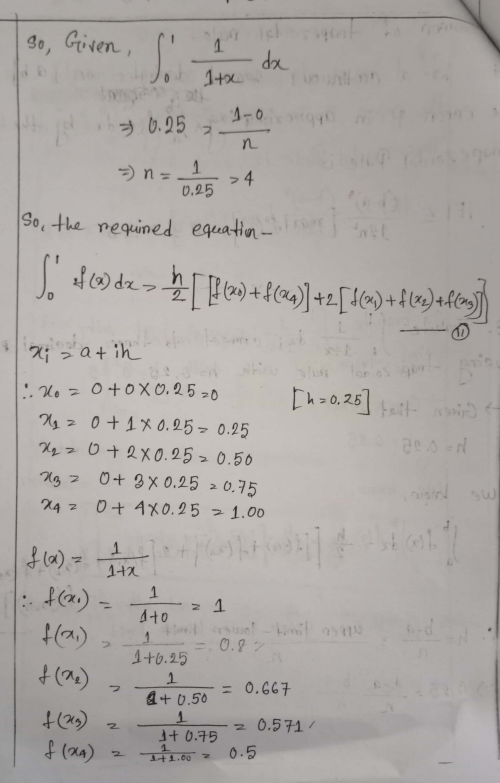 So, Given, ∫₀¹ 1/(1+x) dx
⇒ 0.25 = (1-0)/n
⇒ n = 1/0.25 = 4
So, the required equation-
∫₀¹ f(x) dx = h/2 [[f(x₀)+f(x₄)]+2[f(x₁)+f(x₂)+f(x₃)]]
— (11)
xᵢ = a+ih
∴ x₀ = 0+0×0.25=0 [h=0.25]
x₁ = 0+1×0.25= 0.25
x₂ = 0+2×0.25= 0.50
x₃ = 0+3×0.25=0.75
x₄ = 0+4×0.25=1.00
f(x) = 1/(1+x)
∴ f(x₁) = 1/(1+0) = 1
f(x₁) = 1/(1+0.25) = 0.8
f(x₂) = 1/(1+0.50) = 0.667
f(x₃) = 1/(1+0.75) = 0.571
f(x₄) = 1/(1+1.00) = 0.5